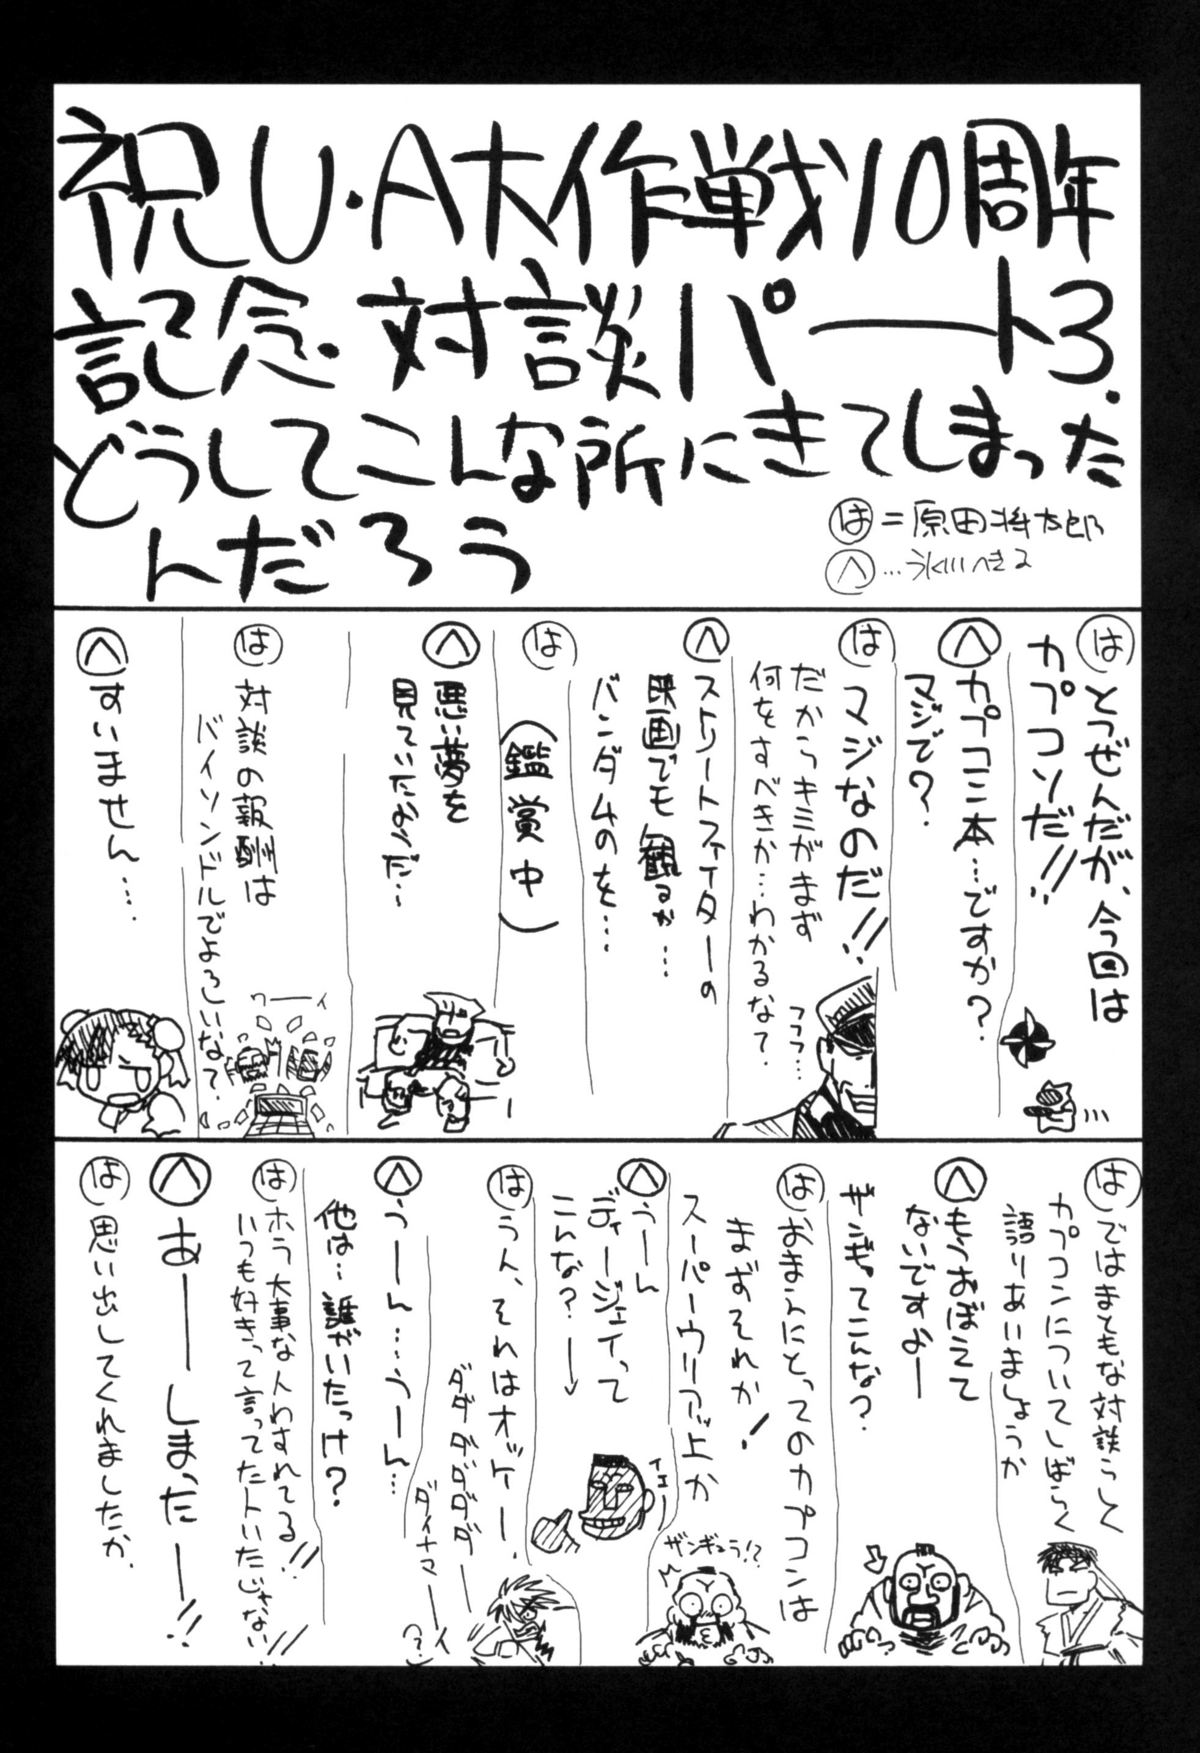 祝U・A大作戦10周年
記念・対談パート3.
どうしてこんな所にきてしまった
んだろう
は=原田将太郎
へ…うkiiiへきる
は とつぜんだが、今回は
カプコソだ!!
へ カプコン本…ですか?
マジで?
は マジなのだ!!
だからキミがまず
何をすべきか…わかるな?
フフフ…
へ ストリートファイターの
映画でも観るか…
バンダムのを…
は
(鑑賞中)
へ 悪い夢を
見ていたようだ…
は 対談の報酬は
バイソンドルでよろしいな?
ワーーイ
へ すいません….
は ではまともな対談らしく
カプコンについてしばらく
語りあいましょうか
へ もうおぼえて
ないですよー
ザンギってこんな?
は おまえにとってのカプコンは
まずそれか!
スーパーウリアッ上か
ザンギュラ!?
へ うーん
ディージェイって
こんな?→
イエー
は うん、それはオッケー.
ダダダダダダー
ダイナマーイ
(?)
へ うーん…うーん…
他は…誰がいたっけ?
は ホラ大事な人わすれてる!!
いつも好きって言ってた人いたじゃない!!
へ あーーしまったーー!!
は 思い出してくれましたか.